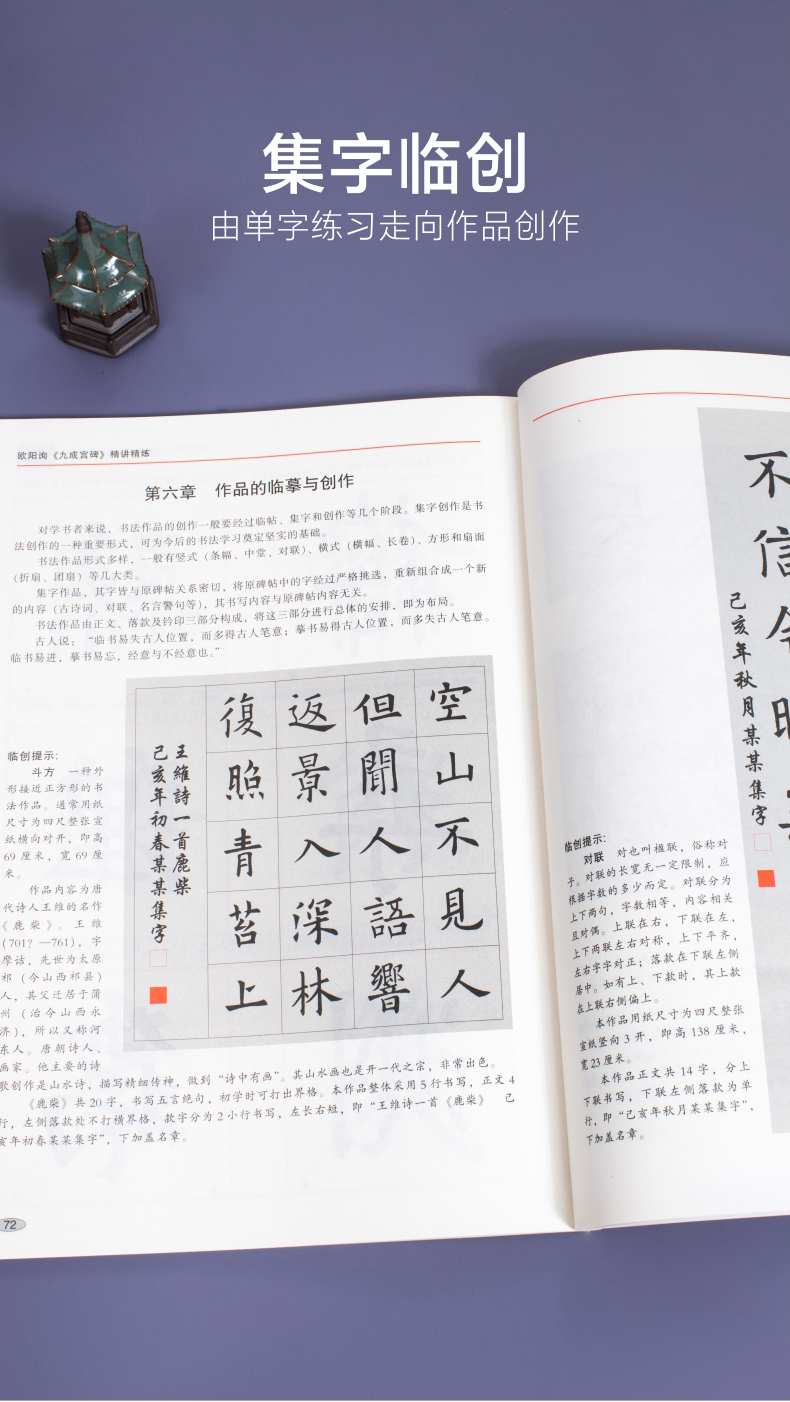 集字临创
由单字练习走向作品创作
欧阳询《九成宫碑》精讲精练
第六章　作品的临摹与创作
对学书者来说，书法作品的创作一般要经过临帖、集字和创作等几个阶段。集字创作是书
法创作的一种重要形式，可为今后的书法学习奠定坚实的基础。
书法作品形式多样，一般有竖式（条幅、中堂、对联）、横式（横幅、长卷）、方形和扇面
（折扇、团扇）等几大类。
集字作品，其字皆与原碑帖关系密切，将原碑帖中的字经过严格挑选，重新组合成一个新
的内容（古诗词、对联、名言警句等），其书写内容与原碑帖内容无关。
书法作品由正文、落款及钤印三部分构成，将这三部分进行总体的安排，即为布局。
古人说：“临书易失古人位置，而多得古人笔意；摹书易得古人位置，而多失古人笔意。
临书易进，摹书易忘，经意与不经意也。”
空山不見人
但聞人語響
返景入深林
復照青苔上
王維詩一首鹿柴
己亥年初春某某集字
临创提示：
斗方　一种外
形接近正方形的书
法作品。通常用纸
尺寸为四尺整张宣
纸横向对开，即高
69 厘米，宽 69 厘
米。
作品内容为唐
代诗人王维的名作
《鹿柴》。王维
（701？—761），字
摩诘，先世为太原
祁（今山西祁县）
人，其父迁居于蒲
州（治今山西永
济），所以又称河
东人。唐朝诗人、
画家。他主要的诗
歌创作是山水诗，描写精细传神，做到“诗中有画”。其山水画也是开一代之宗，非常出色。
《鹿柴》共 20 字，书写五言绝句，初学时可打出界格。本作品整体采用 5 行书写，正文 4
行，左侧落款处不打横界格，款字分为 2 小行书写，左长右短，即“王维诗一首《鹿柴》　己
亥年初春某某集字”，下加盖名章。
72
不信今
己亥年秋月某某集字
临创提示：
对联　对也叫楹联，俗称对
子。对联的长宽无一定限制，应
根据字数的多少而定。对联分为
上下两句，字数相等，内容相关
且对偶。上联在右，下联在左，
上下两联左右对称，上下平齐，
左右字字对正；落款在下联左侧
居中。如有上、下款时，其上款
在上联右侧偏上。
本作品用纸尺寸为四尺整张
宣纸竖向 3 开，即高 138 厘米，
宽 23 厘米。
本作品正文共 14 字，分上
下联书写，下联左侧落款为单
行，即“己亥年秋月某某集字”，
下加盖名章。